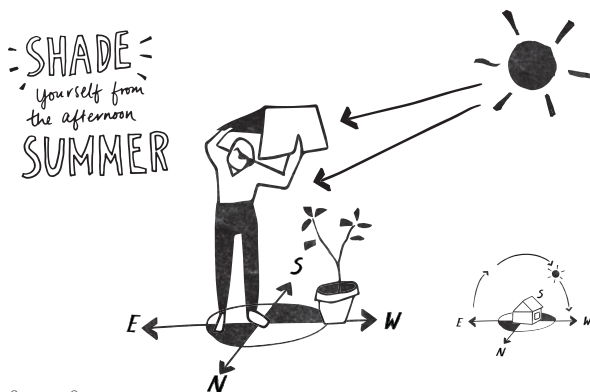 SHADE
yourself from
the afternoon
SUMMER
S
E
W
N
S
E
W
N